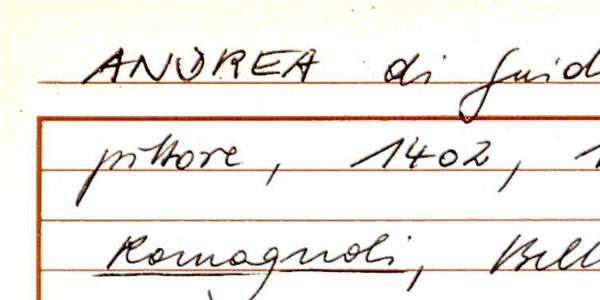 ANDREA di Guid
pittore, 1402, 1
Romagnoli, Bell